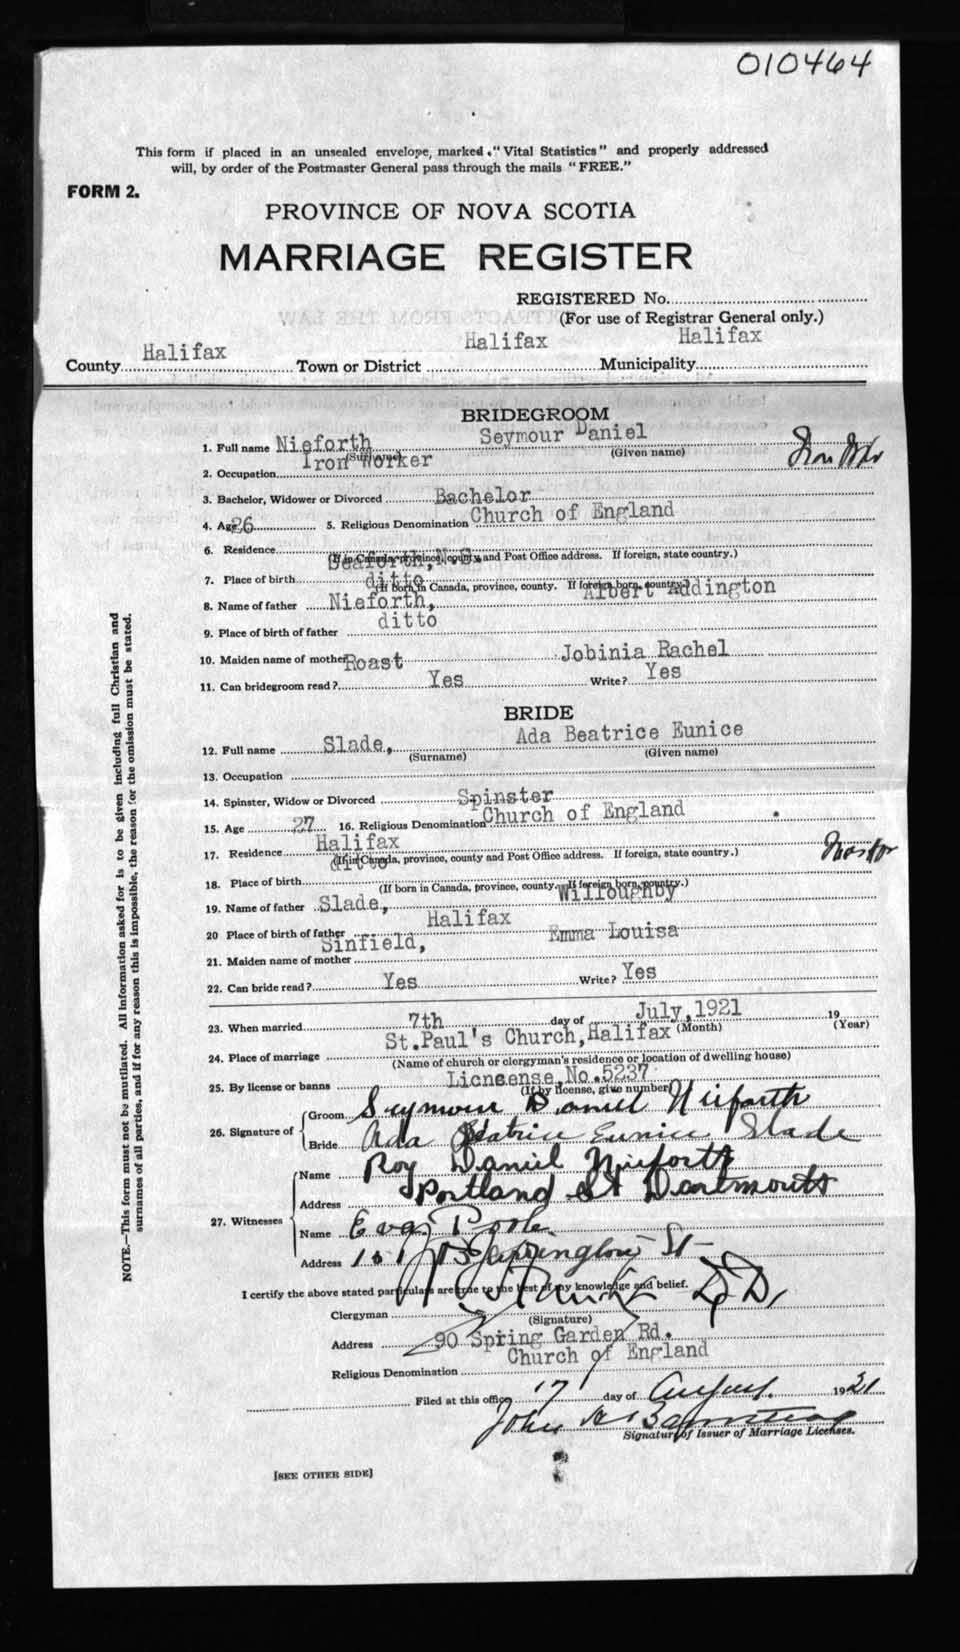 010464
This form if placed in an unsealed envelope, marked "Vital Statistics" and properly addressed
will, by order of the Postmaster General pass through the mails "FREE."
FORM 2.
PROVINCE OF NOVA SCOTIA
MARRIAGE REGISTER
REGISTERED No.
(For use of Registrar General only.)
County Halifax Town or District Halifax Municipality Halifax
BRIDEGROOM
1. Full name Nieforth Seymour Daniel
(Surname) (Given name)
2. Occupation Iron Worker Iron Wkr
3. Bachelor, Widower or Divorced Bachelor
4. Age 26 5. Religious Denomination Church of England
6. Residence
Seaforth, N.S.
(If in Canada, province, county and Post Office address. If foreign, state country.)
7. Place of birth ditto
(If born in Canada, province, county. If foreign born, country.)
8. Name of father Nieforth, Albert Addington
9. Place of birth of father ditto
10. Maiden name of mother Roast Jobinia Rachel
11. Can bridegroom read? Yes Write? Yes
BRIDE
12. Full name Slade, Ada Beatrice Eunice
(Surname) (Given name)
13. Occupation
14. Spinster, Widow or Divorced Spinster
15. Age 27 16. Religious Denomination Church of England
17. Residence Halifax
(If in Canada, province, county and Post Office address. If foreign, state country.)
18. Place of birth ditto
(If born in Canada, province, county. If foreign born, country.)
19. Name of father Slade, Willoughby
20 Place of birth of father Halifax
21. Maiden name of mother Sinfield, Emma Louisa
22. Can bride read? Yes Write? Yes
23. When married 7th day of July, 1921 19
(Month) (Year)
24. Place of marriage St.Paul's Church, Halifax
(Name of church or clergyman's residence or location of dwelling house)
25. By license or banns Licnsense, No.5237
(If by license, give number)
26. Signature of
Groom Seymour Daniel Nieforth
Bride Ada Beatrice Eunice Slade
27. Witnesses
Name Roy Daniel Nieforth
Address Portland St Dartmouth
Name Eva Poole
Address St
I certify the above stated particulars are true to the best of my knowledge and belief.
Clergyman D.D.
(Signature)
Address 90 Spring Garden Rd.
Religious Denomination Church of England
Filed at this office 17 day of August 1921
John
Signature of Issuer of Marriage Licenses.
[SEE OTHER SIDE]
NOTE.—This form must not be mutilated. All information asked for is to be given including full Christian and
surnames of all parties, and if for any reason this is impossible, the reason for the omission must be stated.